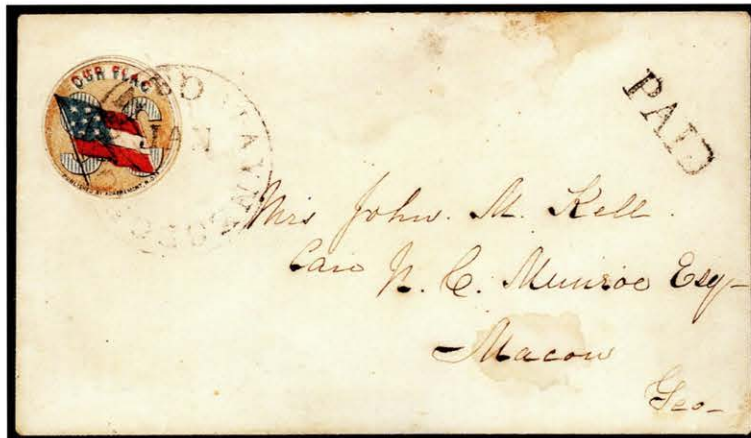 OUR FLAG
JAN
PAID
Mrs John. M. Kell.
Care N. C. Munroe Esq-
Macon
Geo-